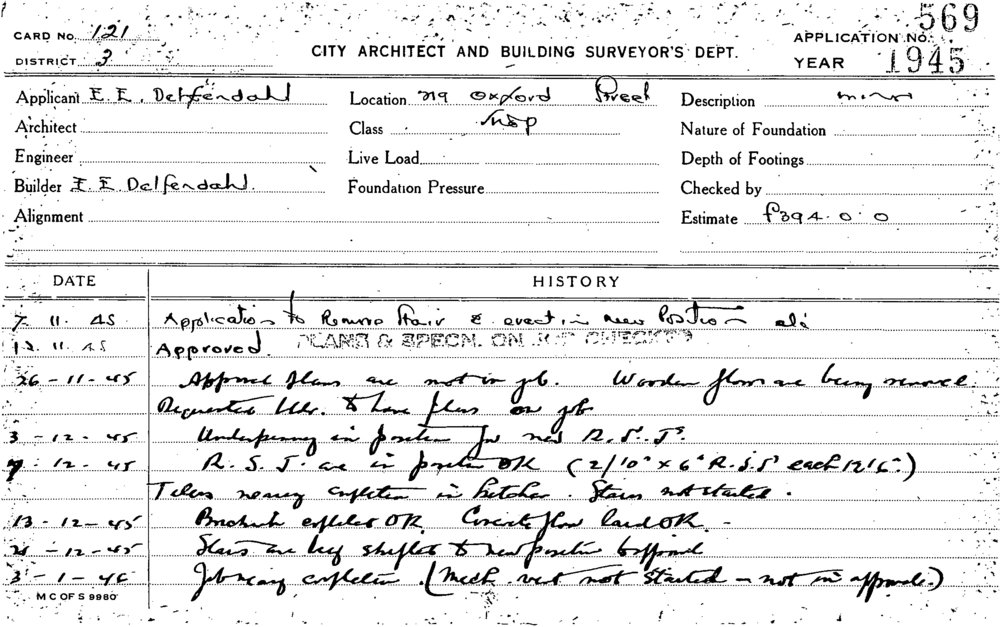 CARD No. 121
DISTRICT 3
CITY ARCHITECT AND BUILDING SURVEYOR'S DEPT.
APPLICATION No. 569
YEAR 1945
Applicant E. E. Delfendahl Location 219 Oxford Street Description minor
Architect Class Shop Nature of Foundation
Engineer Live Load Depth of Footings
Builder E. E. Delfendahl. Foundation Pressure Checked by
Alignment Estimate £394.0.0
DATE HISTORY
7. 11. 45 Application to Remove Stair & erect in new Position
12. 11. 45 Approved. PLANS & SPECN. ON JOB CHECKED
26-11-45 Approved plans are not on job. Wooden floors are being removed.
Requested bldr. to have plans on job
3-12-45 Underpinning in position for new R.S.Js.
7-12-45 R.S.J. are in position OK (2/10" x 6" R.S.J's each 12'6")
Tilers nearing completion in kitchen. Stairs not started.
13-12-45 Brickwork completed OK. Concrete floor laid OK. -
21-12-45 Stairs are being shifted to new position approved
3-1-46 Job nearing completion. (Mech. vent not started - not in approval.)
M C OF S 9980